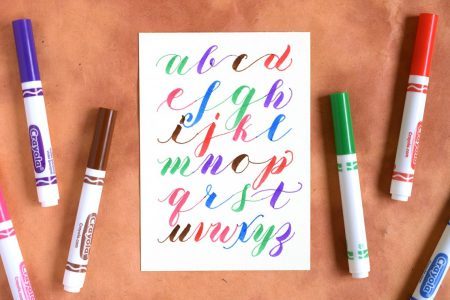 a b c d
e f g h
i j k l
m n o p
q r s t
u v w x y z
Crayola
Crayola
Crayola.com
Crayola
Crayola.com
Crayola